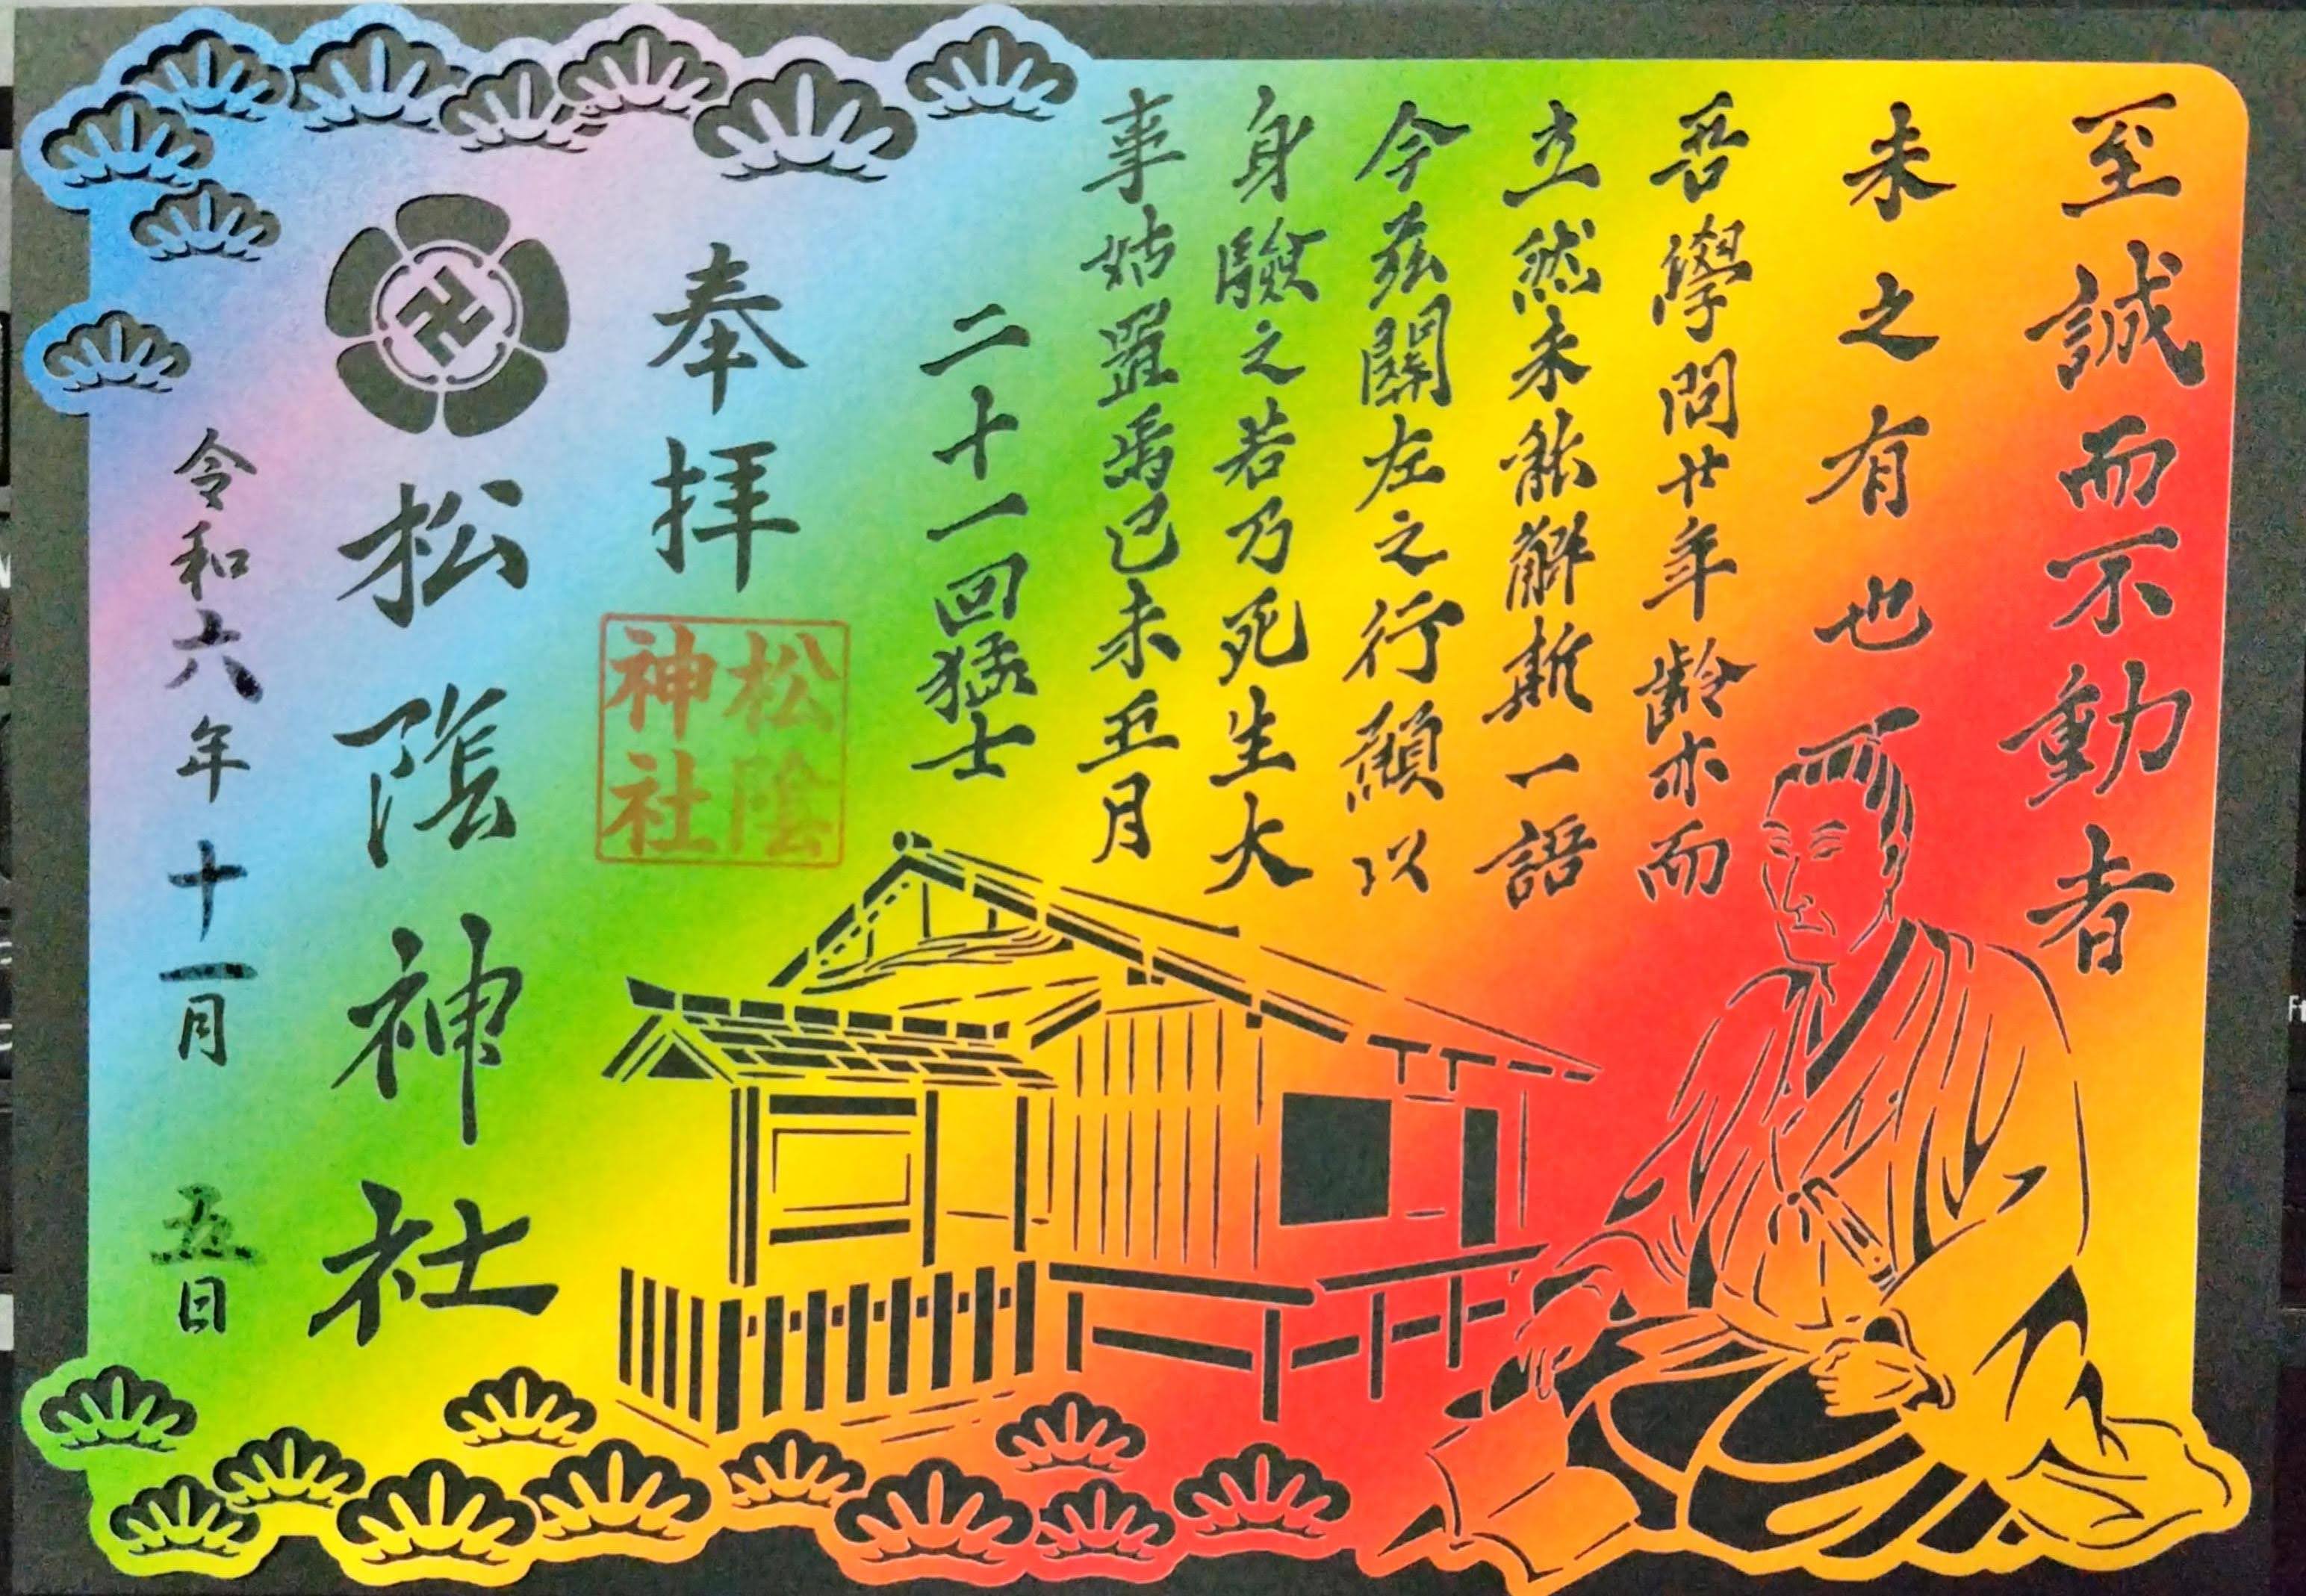 至誠而不動者
未之有也
吾學問廿年齢亦而
立然未能解斯一語
今茲關左之行願以
身驗之若乃死生大
事姑置焉己未五月
二十一回猛士
奉拝
松陰
神社
松陰神社
令和六年十一月五日